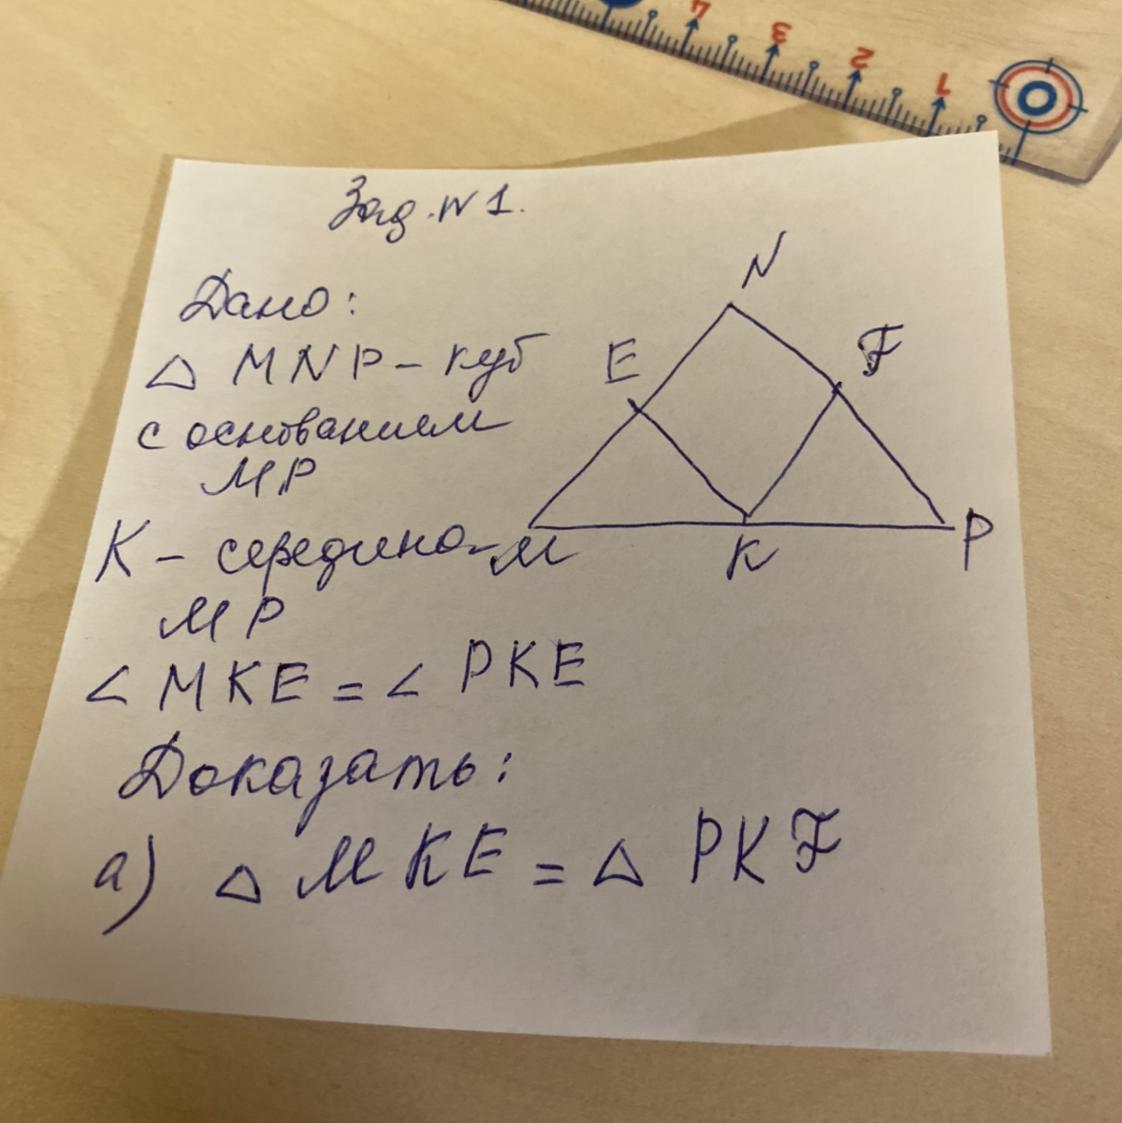 4 3 2 1 0
Зад. N 1.
Дано:
△ MNP - куб
с основанием
MP
К - середина
MP
∠ MKE = ∠ PKE
Доказать:
а) △ MKE = △ PKF
N
E
F
M
K
P